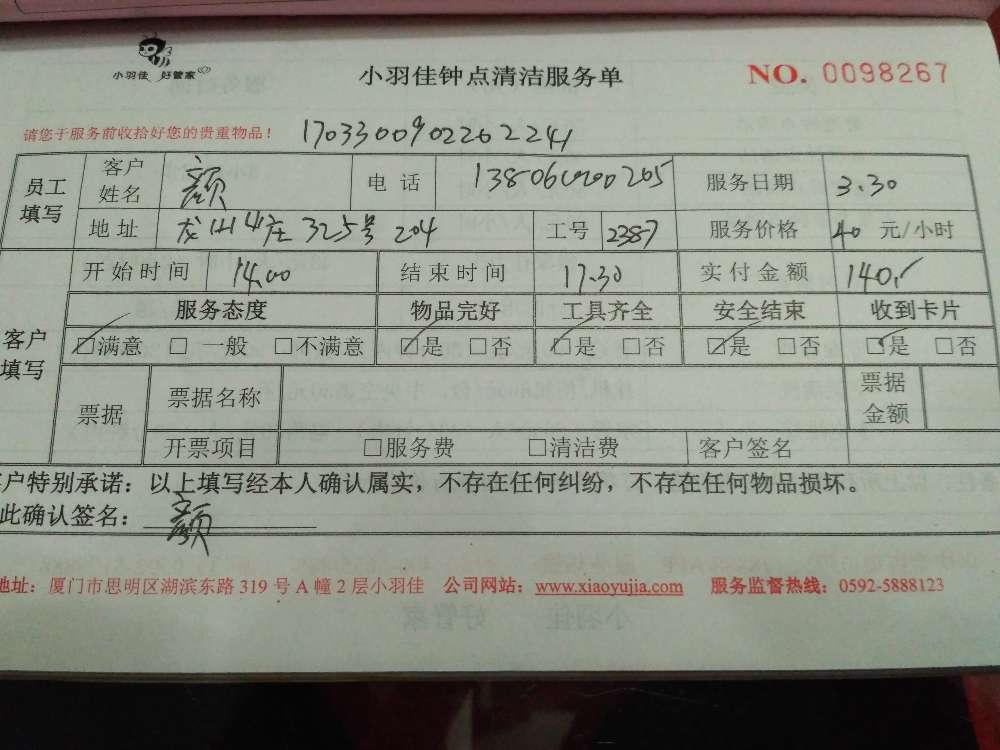 小羽佳 好管家
小羽佳钟点清洁服务单
NO. 0098267
请您于服务前收拾好您的贵重物品！ 1703300902262241
员工填写 客户姓名 颜 电话 服务日期 3.30
地址 龙山山庄325号204 工号 2387 服务价格 40 元/小时
客户填写 开始时间 14.00 结束时间 17.30 实付金额 140.
服务态度 物品完好 工具齐全 安全结束 收到卡片
☑满意 □一般 □不满意 ☑是 □否 ☑是 □否 ☑是 □否 ☑是 □否
票据 票据名称 票据金额
开票项目 □服务费 □清洁费 客户签名
客户特别承诺：以上填写经本人确认属实，不存在任何纠纷，不存在任何物品损坏。
此确认签名： 颜
地址：厦门市思明区湖滨东路 319 号 A 幢 2 层小羽佳 公司网站：www.xiaoyujia.com 服务监督热线：0592-5888123